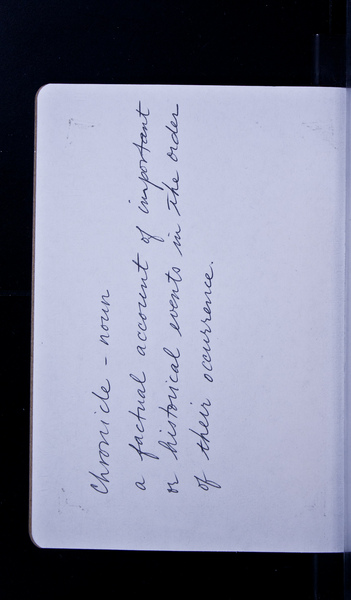 Chronicle - noun
a factual account of important
or historical events in the order
of their occurrence.